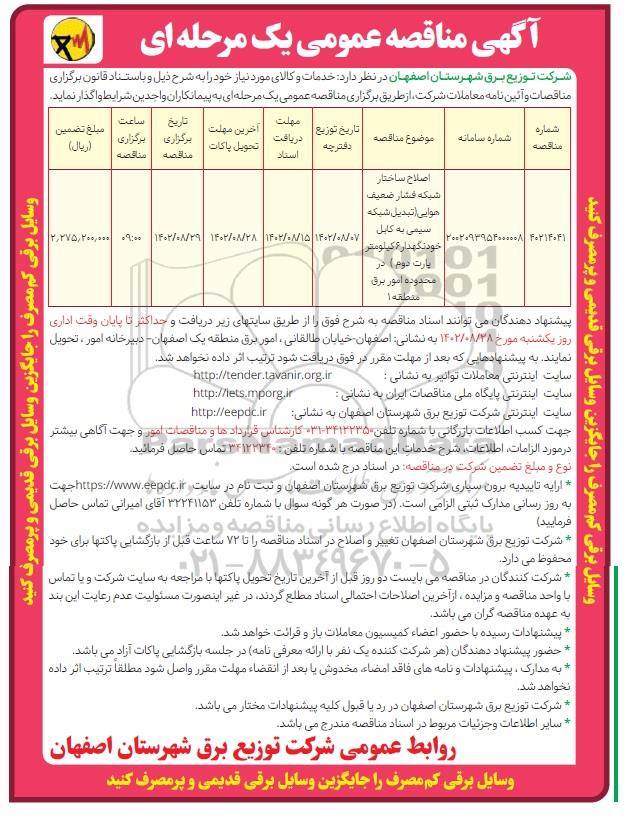 آگهی مناقصه عمومی یک مرحله ای
شرکت توزیع برق شهرستان اصفهان در نظر دارد: خدمات و کالای مورد نیاز خود را به شرح ذیل و باستناد قانون برگزاری
مناقصات و آئین نامه معاملات شرکت، از طریق برگزاری مناقصه عمومی یک مرحله ای به پیمانکاران واجدین شرایط واگذار نماید.
شماره مناقصه | شماره سامانه | موضوع مناقصه | تاریخ توزیع دفترچه | مهلت دریافت اسناد | آخرین مهلت تحویل پاکات | تاریخ برگزاری مناقصه | ساعت برگزاری مناقصه | مبلغ تضمین (ریال)
۴۰۲۱۴۰۴۱ | ۲۰۰۲۰۹۳۹۵۴۰۰۰۰۰۸ | اصلاح ساختار شبکه فشار ضعیف هوایی(تبدیل شبکه سیمی به کابل خودنگهدار۶کیلومتر پارت دوم ) در محدوده امور برق منطقه۱ | ۱۴۰۲/۰۸/۰۷ | ۱۴۰۲/۰۸/۱۵ | ۱۴۰۲/۰۸/۲۸ | ۱۴۰۲/۰۸/۲۹ | ۰۹:۰۰ | ۲,۲۷۵,۲۰۰,۰۰۰
پیشنهاد دهندگان می توانند اسناد مناقصه به شرح فوق را از طریق سایتهای زیر دریافت و حداکثر تا پایان وقت اداری
روز یکشنبه مورخ ۱۴۰۲/۰۸/۲۸ به نشانی: اصفهان-خیابان طالقانی ، امور برق منطقه یک اصفهان– دبیرخانه امور ، تحویل
نمایند. به پیشنهادهایی که بعد از مهلت مقرر در فوق دریافت شود ترتیب اثر داده نخواهد شد.
سایت اینترنتی معاملات توانیر به نشانی : http://tender.tavanir.org.ir
سایت اینترنتی پایگاه ملی مناقصات ایران به نشانی : http://iets.mporg.ir
سایت اینترنتی شرکت توزیع برق شهرستان اصفهان به نشانی: http://eepdc.ir
جهت کسب اطلاعات بازرگانی با شماره تلفن ۳۴۱۲۲۳۵۰-۰۳۱ کارشناس قرارداد ها و مناقصات امور و جهت آگاهی بیشتر
درمورد الزامات، اطلاعات، شرح خدمات این مناقصه با شماره تلفن : ۳۴۱۲۲۳۴۰ تماس حاصل فرمائید.
نوع و مبلغ تضمین شرکت در مناقصه: در اسناد درج شده است.
* ارایه تاییدیه برون سپاری شرکت توزیع برق شهرستان اصفهان و ثبت نام در سایت https://www.eepdc.ir جهت
به روز رسانی مدارک ثبتی الزامی است. (در صورت هر گونه سوال با شماره تلفن ۳۲۲۴۱۱۵۳ آقای امیرانی تماس حاصل
فرمایید)
* شرکت توزیع برق شهرستان اصفهان تغییر و اصلاح در اسناد مناقصه را تا ۷۲ ساعت قبل از بازگشایی پاکتها برای خود
محفوظ می دارد.
* شرکت کنندگان در مناقصه می بایست دو روز قبل از آخرین تاریخ تحویل پاکتها با مراجعه به سایت شرکت و یا تماس
با واحد مناقصه و مزایده ، ازآخرین اصلاحات احتمالی اسناد مطلع گردند، در غیر اینصورت مسئولیت عدم رعایت این بند
به عهده مناقصه گران می باشد.
* پیشنهادات رسیده با حضور اعضاء کمیسیون معاملات باز و قرائت خواهد شد.
* حضور پیشنهاد دهندگان (هر شرکت کننده یک نفر با ارائه معرفی نامه) در جلسه بازگشایی پاکات آزاد می باشد.
* به مدارک ، پیشنهادات و نامه های فاقد امضاء، مخدوش یا بعد از انقضاء مهلت مقرر واصل شود مطلقاً ترتیب اثر داده
نخواهد شد.
* شرکت توزیع برق شهرستان اصفهان در رد یا قبول کلیه پیشنهادات مختار می باشد.
* سایر اطلاعات وجزئیات مربوط در اسناد مناقصه مندرج می باشد.
روابط عمومی شرکت توزیع برق شهرستان اصفهان
وسایل برقی کم مصرف را جایگزین وسایل برقی قدیمی و پرمصرف کنید
وسایل برقی کم مصرف را جایگزین وسایل برقی قدیمی و پرمصرف کنید
وسایل برقی کم مصرف را جایگزین وسایل برقی قدیمی و پرمصرف کنید
پایگاه اطلاع رسانی مناقصه و مزایده
۰۲۱-۸۸۳۴۹۶۷۰-۵